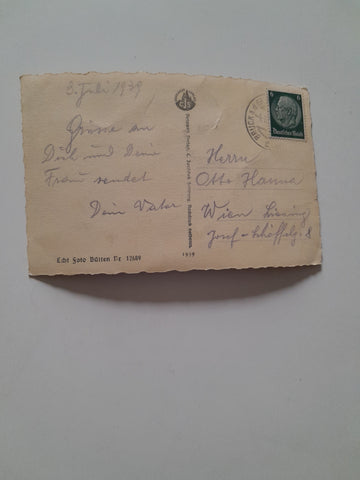 3. Juli 1939
Grüsse an
Dich und Deine
Frau sendet
Dein Vater
Echt Foto Bütten Nr 12609
1939
6 6
Deutsches Reich
BRUCK
Herrn
Otto Hanna
Wien Liesing
Josef-Schöffelg. 8